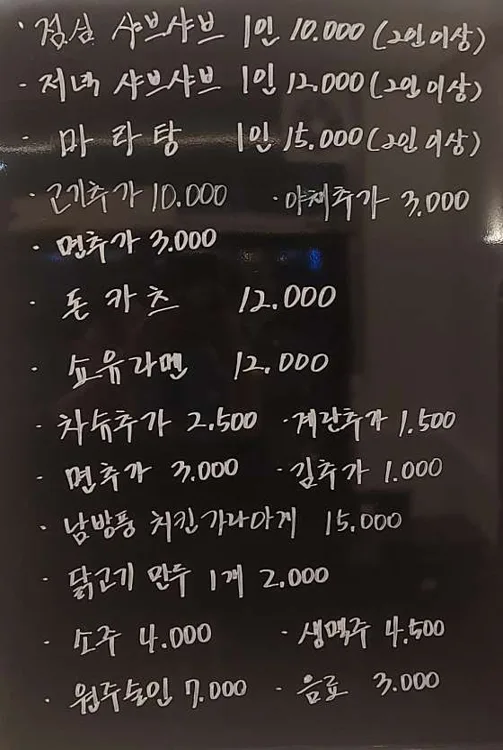 · 점심 샤브샤브 1인 10.000 (2인이상)
· 저녁 샤브샤브 1인 12.000 (2인이상)
· 마라탕 1인 15.000 (2인이상)
· 고기추가 10.000 · 야채추가 3.000
· 면추가 3.000
· 돈카츠 12.000
· 쇼유라멘 12.000
· 차슈추가 2.500 · 계란추가 1.500
· 면추가 3.000 · 김추가 1.000
· 남방풍 치킨가라아게 15.000
· 닭고기 만두 1개 2.000
· 소주 4.000 · 생맥주 4.500
· 원주솔인 7.000 · 음료 3.000